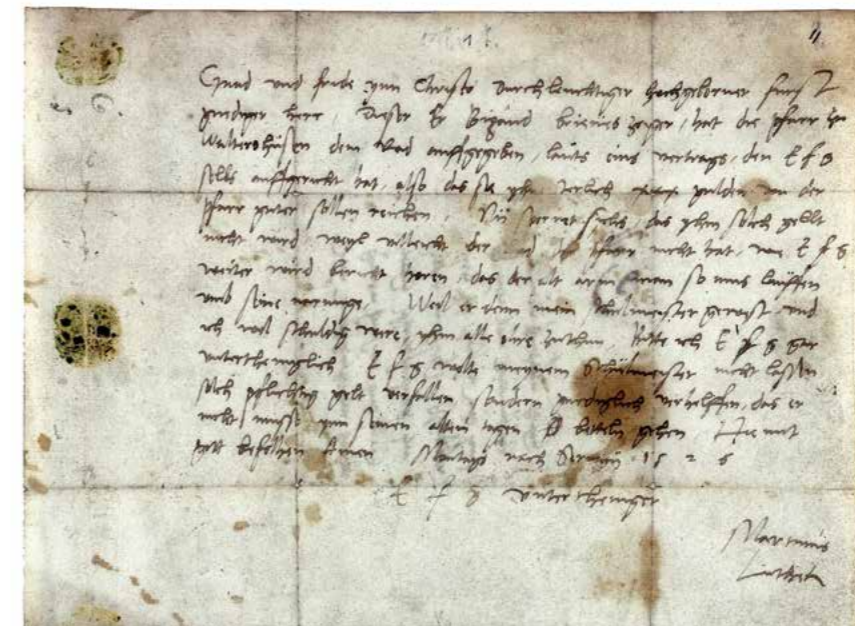 Gnad und fride ynn Christo Durchleuchtiger hochgeborner furst
gnediger herr, Dieser Er Bigand hat die pfarr zu
Waltershusen dem Rad auffgegeben, lauts eins vertrags, den E f g
selbs auffgericht hat, also das sie yhm ierlich xxx gulden von der
pfarr guter sollen reichen, Nu das yhm solch gellt
nicht wird, weyl villeicht der rad die pfarr nicht hat, wie E f g
weiter wird bericht horen, das der alt arm man so mus lauffen
umb seine narunge, Weil er denn mein schulmeister gewest, und
ich wol schuldig were, yhm alle ehre zuthun, bitte ich E f g gar
untertheniglich E f g wolte meynem Schulmeister nicht lassen
solch pflichtig gelt verfallen sondern gnediglich verhelffen, das er
nicht musse ynn seinen alten tagen betteln gehen, Hie mit
gott befolhen Amen Montags nach 1526
E f g untertheniger
Martinus
Luther